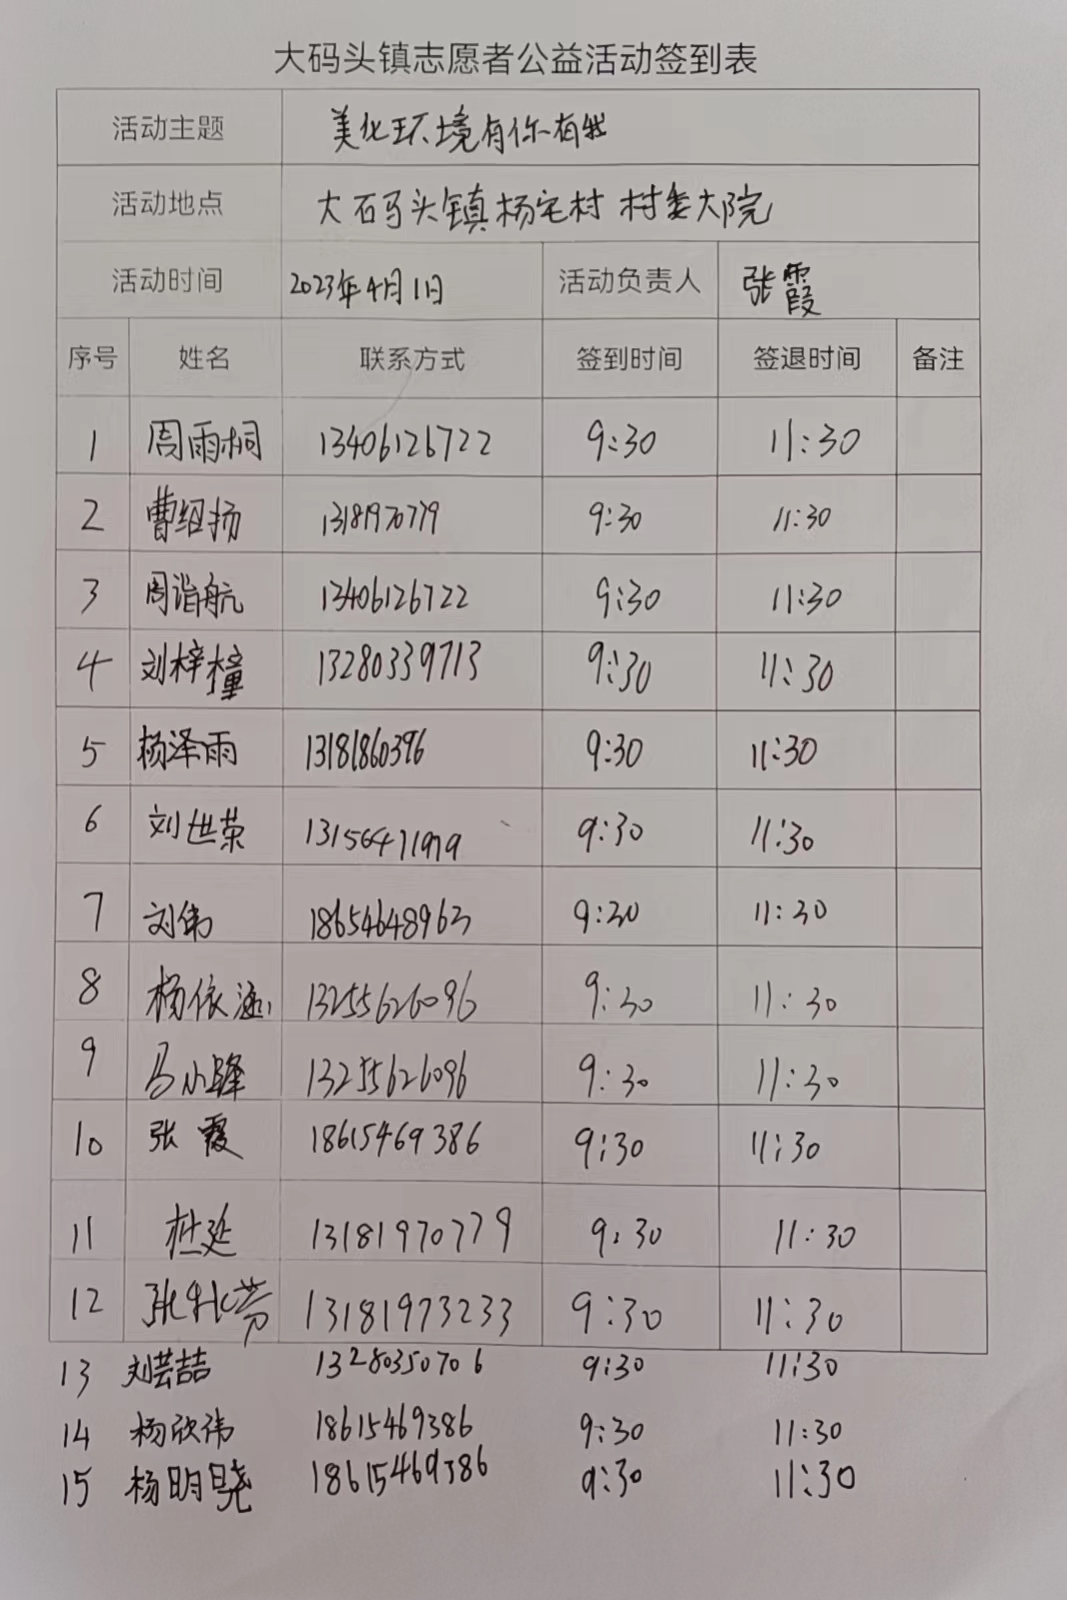 大码头镇志愿者公益活动签到表
活动主题 美化环境有你有我
活动地点 大石马头镇杨宅村 村委大院
活动时间 2023年4月1日 活动负责人 张霞
序号 姓名 联系方式 签到时间 签退时间 备注
1 周雨桐 13406126722 9:30 11:30
2 曹绍扬 13181970779 9:30 11:30
3 周诣航 13406126722 9:30 11:30
4 刘梓橦 13280339713 9:30 11:30
5 杨泽雨 13181860396 9:30 11:30
6 刘世荣 13156471979 9:30 11:30
7 刘伟 18654648963 9:30 11:30
8 杨依涵 13255626096 9:30 11:30
9 马小峰 13255626096 9:30 11:30
10 张霞 18615469386 9:30 11:30
11 杜延 13181970779 9:30 11:30
12 张秋芳 13181973233 9:30 11:30
13 刘芸喆 13280350706 9:30 11:30
14 杨欣伟 18615469386 9:30 11:30
15 杨明晓 18615469386 9:30 11:30